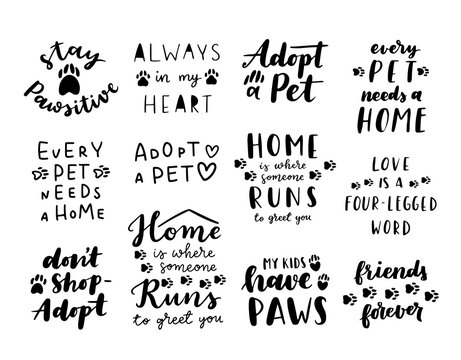 stay
Pawsitive
ALWAYS
in my
HEART
Adopt
a Pet
every
PET
needs a
HOME
EVERY
PET
NEEDS
A HOME
ADOPT
A PET
HOME
is where
someone
RUNS
to greet you
LOVE
IS A
FOUR-LEGGED
WORD
don't
Shop-
Adopt
Home
is where
someone
Runs
to greet you
MY KIDS
have
PAWS
friends
forever